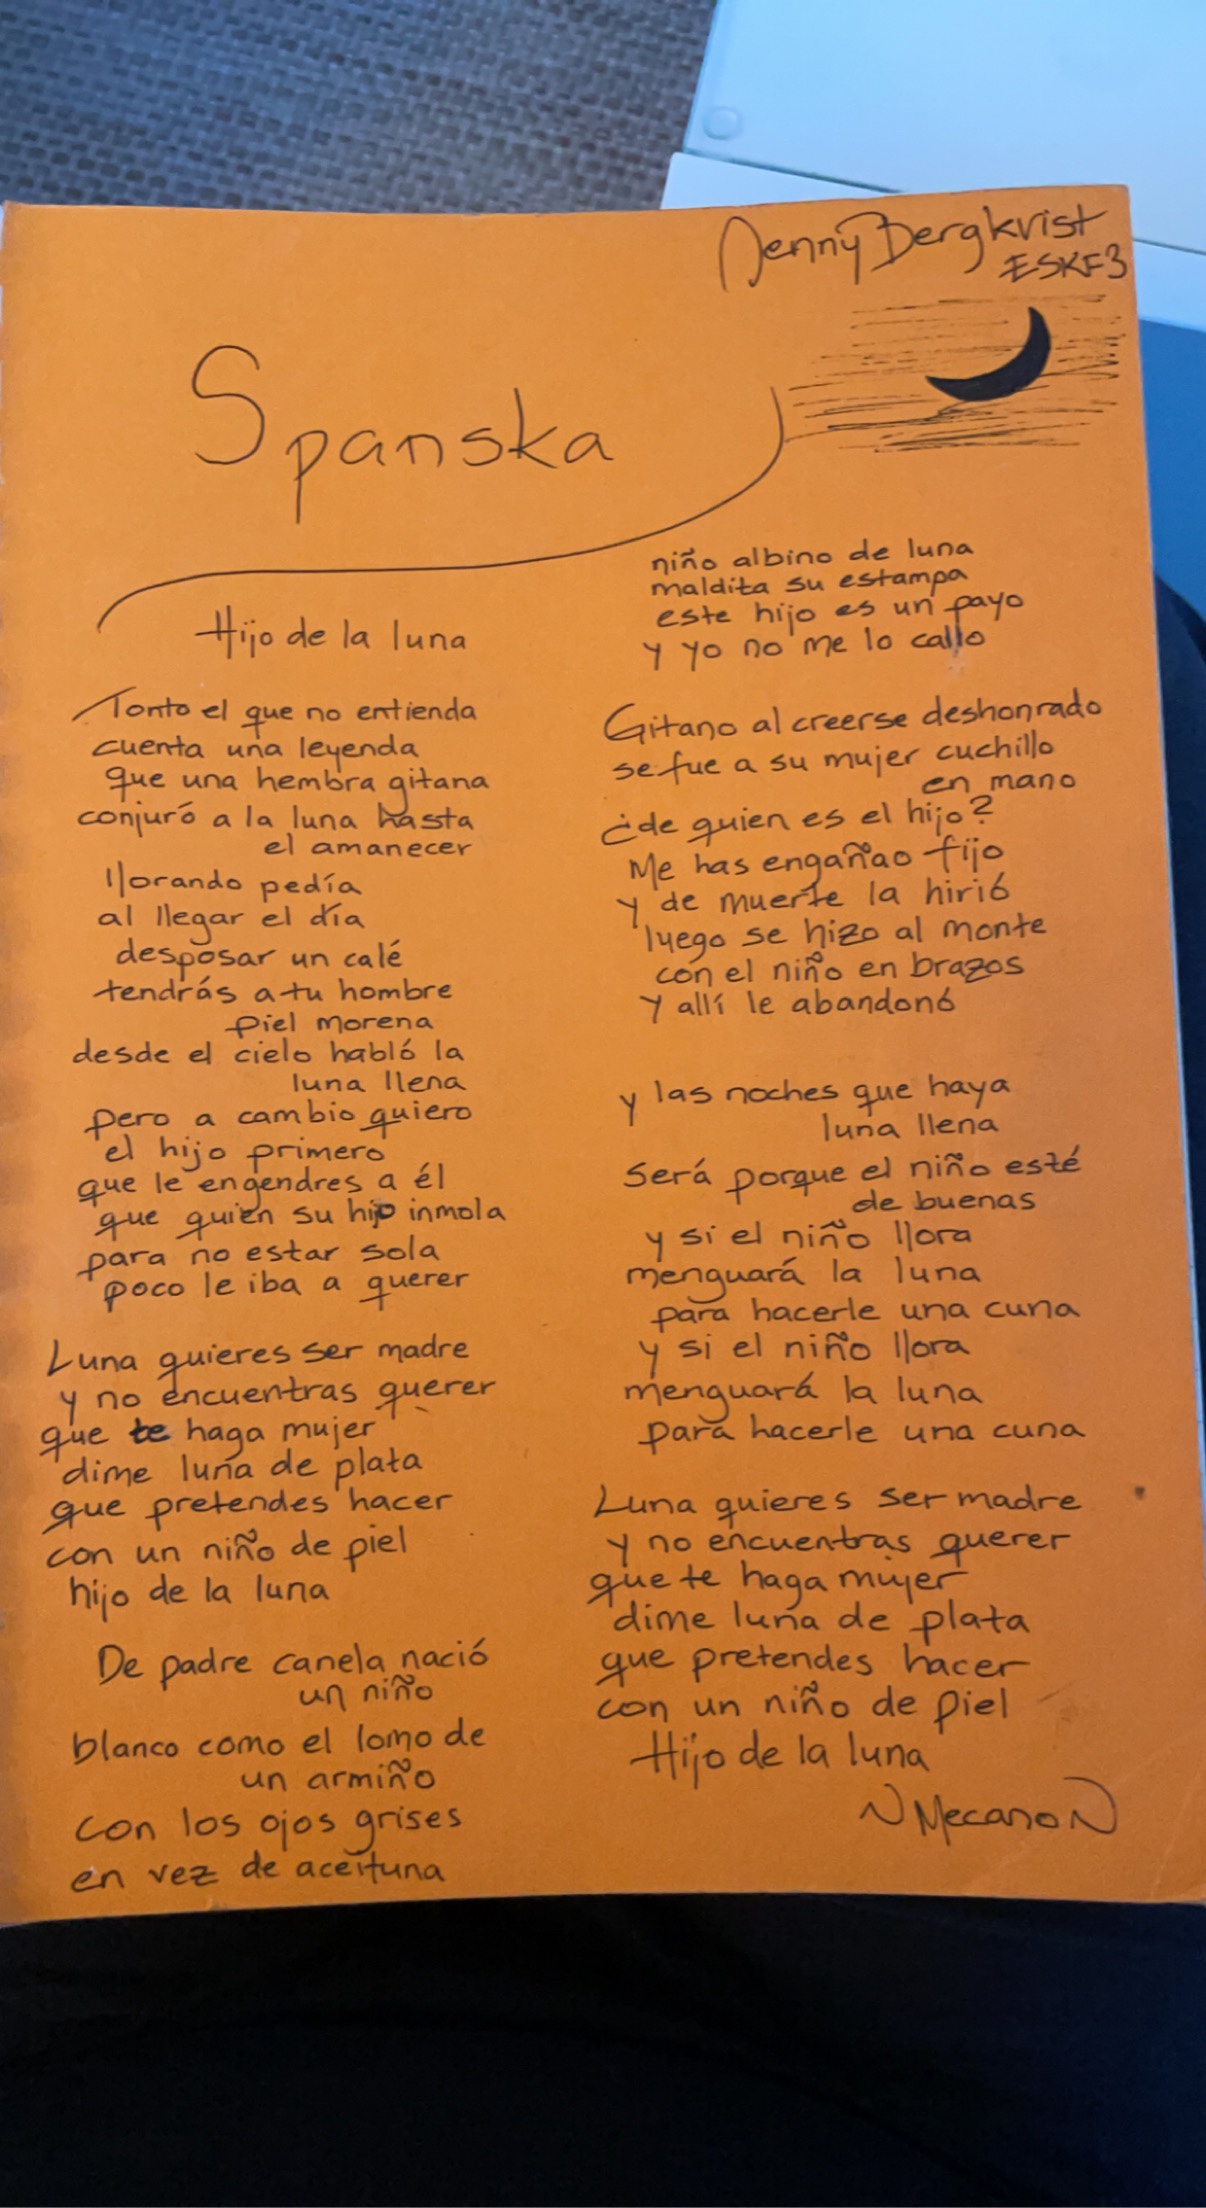 Jenny Bergkvist
ESKF3
Spanska
Hijo de la luna
Tonto el que no entienda
cuenta una leyenda
que una hembra gitana
conjuró a la luna hasta
el amanecer
llorando pedía
al llegar el día
desposar un calé
tendrás a tu hombre
piel morena
desde el cielo habló la
luna llena
pero a cambio quiero
el hijo primero
que le engendres a él
que quien su hijo inmola
para no estar sola
poco le iba a querer
Luna quieres ser madre
y no encuentras querer
que te haga mujer
dime luna de plata
que pretendes hacer
con un niño de piel
hijo de la luna
De padre canela nació
un niño
blanco como el lomo de
un armiño
con los ojos grises
en vez de aceituna
niño albino de luna
maldita su estampa
este hijo es un payo
y yo no me lo callo
Gitano al creerse deshonrado
se fue a su mujer cuchillo
en mano
¿de quien es el hijo?
Me has engañao fijo
y de muerte la hirió
luego se hizo al monte
con el niño en brazos
y allí le abandonó
y las noches que haya
luna llena
será porque el niño esté
de buenas
y si el niño llora
menguará la luna
para hacerle una cuna
y si el niño llora
menguará la luna
para hacerle una cuna
Luna quieres ser madre
y no encuentras querer
que te haga mujer
dime luna de plata
que pretendes hacer
con un niño de piel
Hijo de la luna
~ Mecano ~